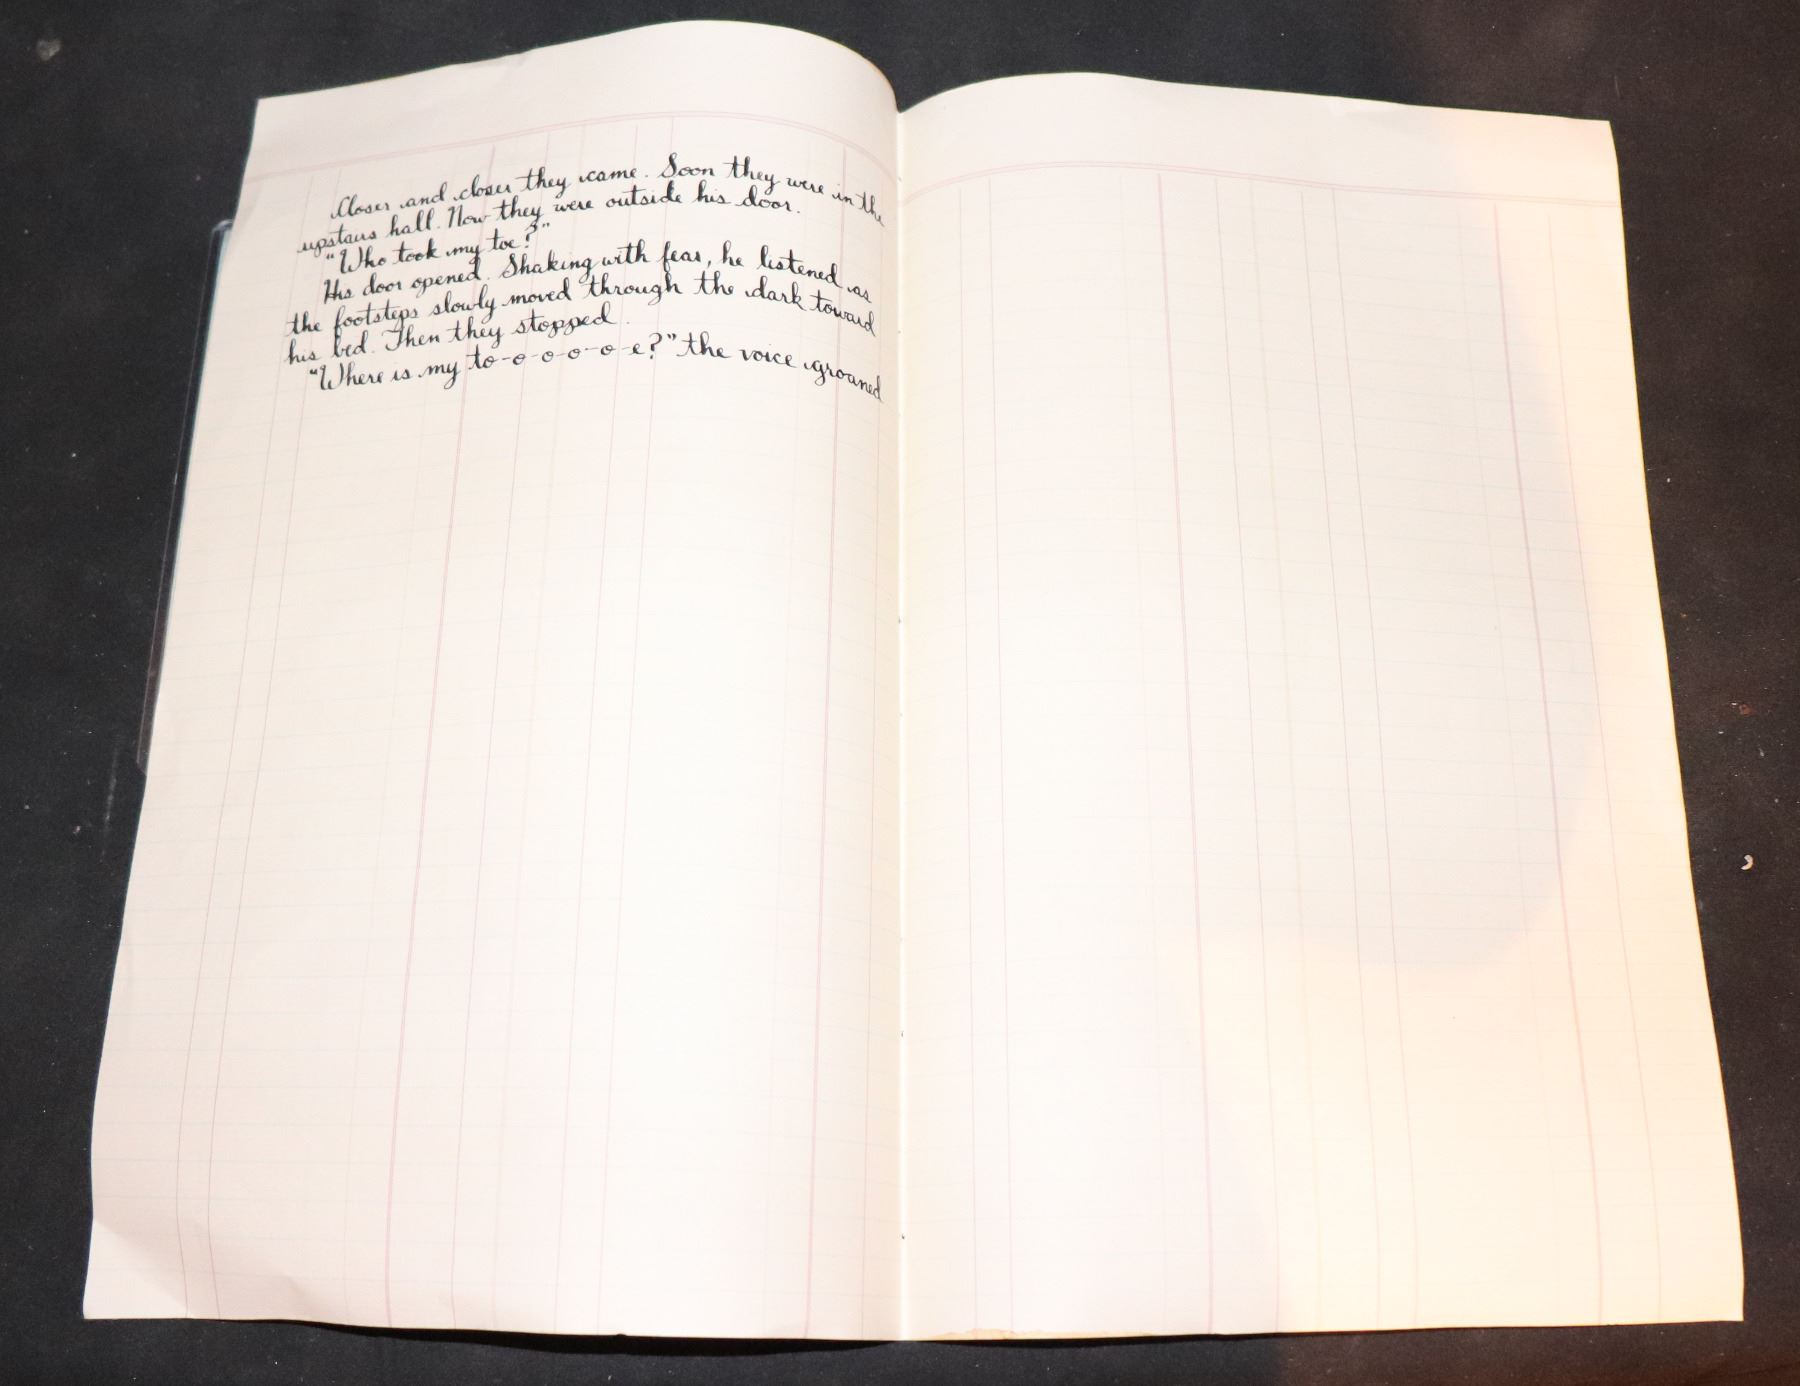 Closer and closer they came. Soon they were in the
upstairs hall. Now they were outside his door.
"Who took my toe?"
His door opened. Shaking with fear, he listened as
the footsteps slowly moved through the dark toward
his bed. Then they stopped.
"Where is my to-o-o-o-o-e?" the voice groaned